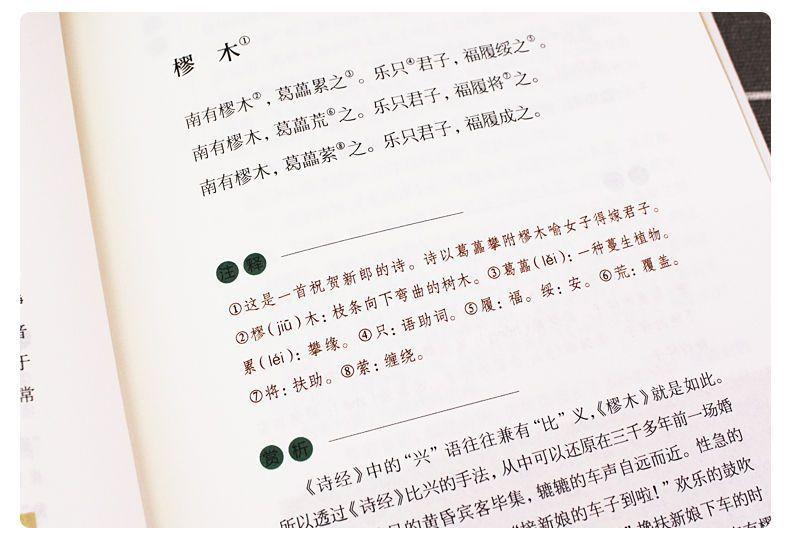 樛 木①
南有樛木②，葛藟累之③。乐只④君子，福履绥之⑤。
南有樛木，葛藟荒⑥之。乐只君子，福履将⑦之。
南有樛木，葛藟萦⑧之。乐只君子，福履成之。
注释
①这是一首祝贺新郎的诗。诗以葛藟攀附樛木喻女子得嫁君子。
②樛(jiū)木：枝条向下弯曲的树木。③葛藟(lěi)：一种蔓生植物。
累(léi)：攀缘。④只：语助词。⑤履：福。绥：安。⑥荒：覆盖。
⑦将：扶助。⑧萦：缠绕。
赏析
《诗经》中的“兴”语往往兼有“比”义，《樛木》就是如此。
所以透过《诗经》比兴的手法，从中可以还原在三千多年前一场婚
的黄昏宾客毕集，辘辘的车声自远而近。性急的
“接新娘的车子到啦！”欢乐的鼓吹
搀扶新娘下车的时
音
于
常